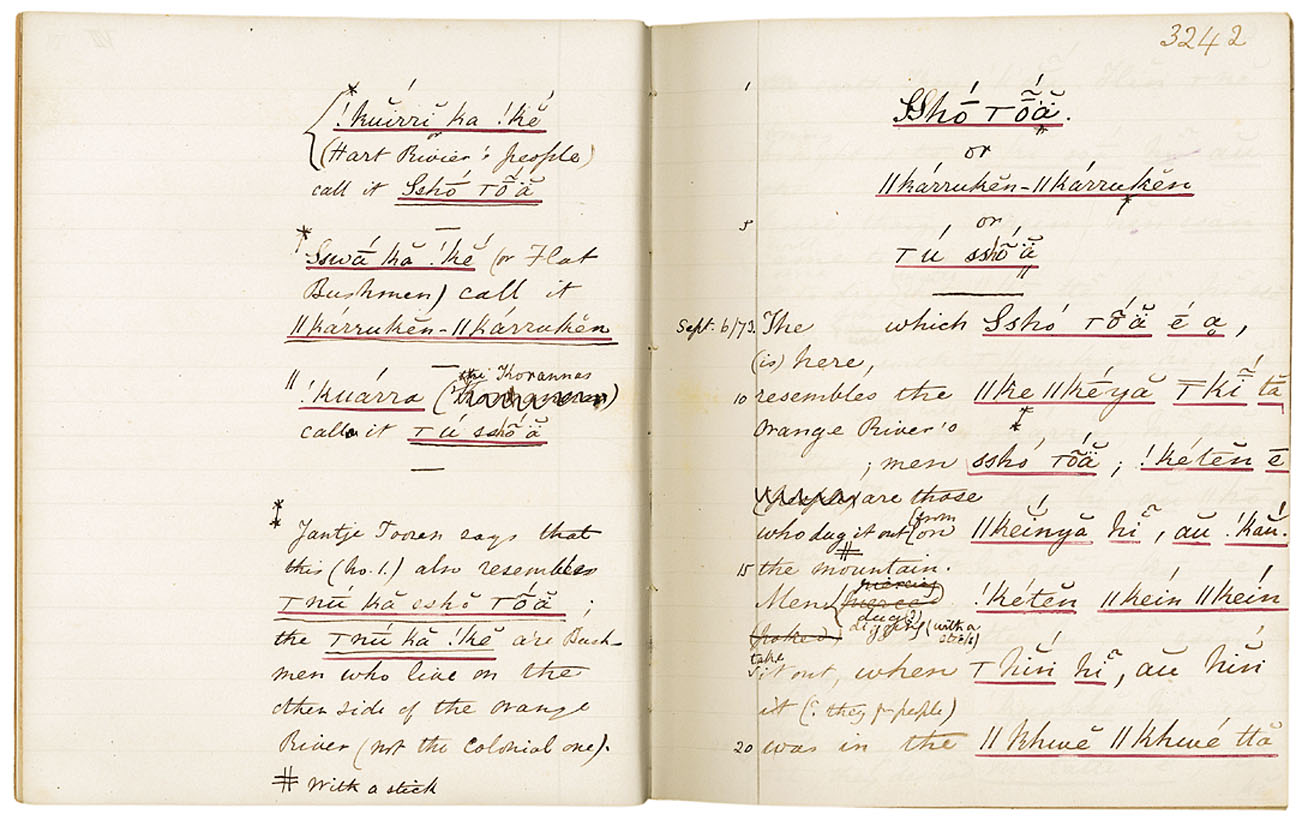 !kŭirri ka !kĕ
or
(Hart Rivier's people)
call it Sshó τõä̆
Sswá kă !kĕ (or Flat
Bushmen) call it
||kárrukĕn-||kárrukĕn
the Korannas
!kuárra
call it τú sshõä̆
Jantje Tooren says that
this (no. 1.) also resembles
τnú kă sshó τõä̆ ;
the τnú kă !kĕ are Bush-
men who live on the
other side of the Orange
River (not the Colonial one).
# With a stick
3242
1
Sshó τõä̆.
or
||kárrukĕn-||kárrukĕn
5
or
τú sshõä̆
Sept. 6/73. The which Sshó τõä̆ é ạ,
(is) here,
10 resembles the ||ke ||kéyă τkĩ tă
Orange River's
; men sshó τõä̆ ; !kétĕn ē
are those
who dug it out {from on ||kĕinyă hĩ, aŭ !kaŭ.
15 the mountain.
Men piercing !kétĕn ||kéin ||kéin
pierced
dug(?)
(poked) digging (with a stick)
take
it out, when τhĭn hĩ, aŭ hĭn
it (? they for people)
20 was in the ||khwĕ ||khwé ttă